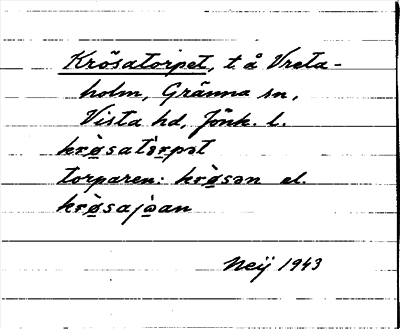 Krösatorpet, t. å Vreta-
holm, Gränna sn,
Vista hd, Jönk. l.
krø̀satòrpət
torparen: krø̀sən el.
krø̀sajòan
Neij 1943